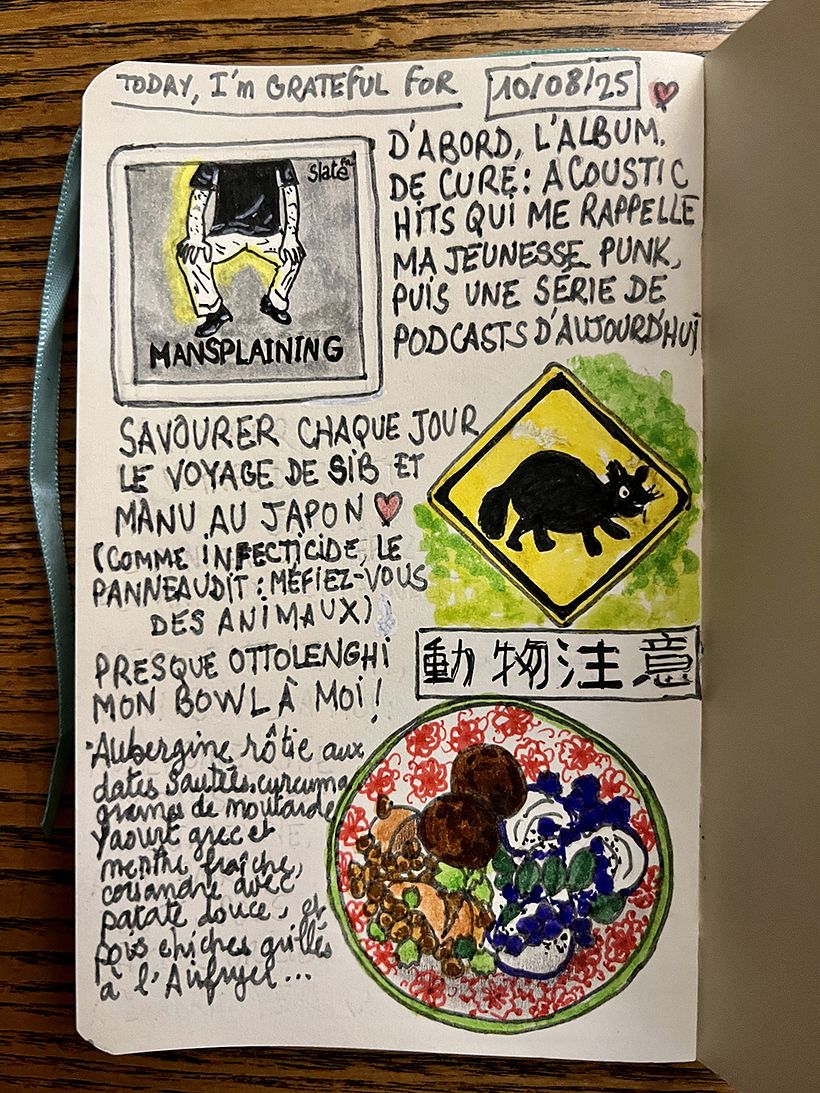 TODAY, I'm GRATEFUL FOR
10/08/25
Slate fr
MANSPLAINING
D'ABORD, L'ALBUM.
DE CURE: ACOUSTIC
HITS QUI ME RAPPELLE
MA JEUNESSE PUNK,
PUIS UNE SÉRIE DE
PODCASTS D'AUJOURD'HUI
SAVOURER CHAQUE JOUR
LE VOYAGE DE SIB ET
MANU AU JAPON
(COMME INFECTICIDE, LE
PANNEAU DIT: MÉFIEZ-VOUS
DES ANIMAUX)
動物注意
PRESQUE OTTOLENGHI
MON BOWL À MOI!
Aubergine rôtie aux
dates sautées, curcuma
graines de moutarde
Yaourt grec et
menthe fraîche,
coriandre avec
patate douce, et
pois chiches grillés
à l'Airfryer...